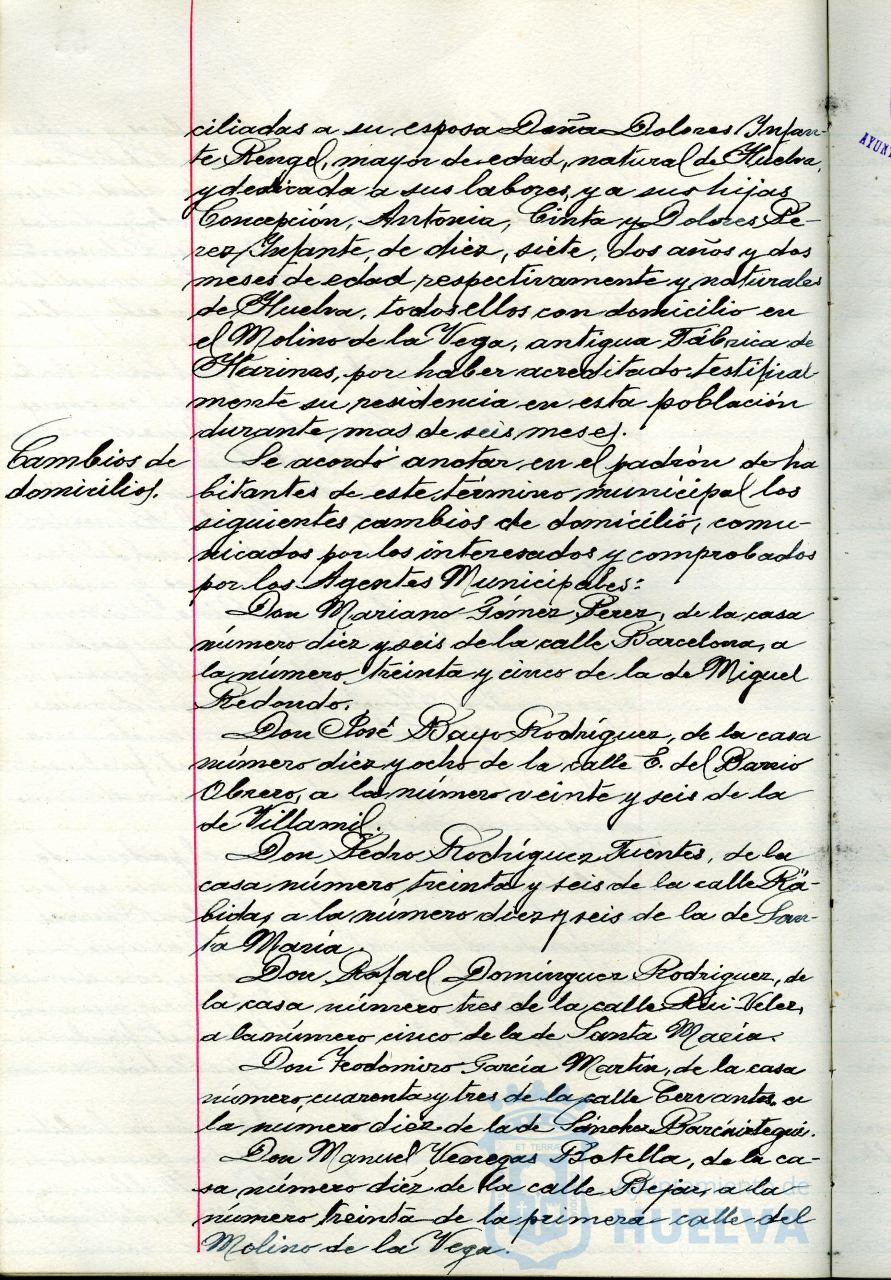 ciliadas a su esposa Doña Dolores Infan-
te Rengel, mayor de edad, natural de Huelva,
y dedicada a sus labores, y a sus hijas
Concepción, Antonia, Cinta y Dolores Pé-
rez Infante, de diez, siete, dos años y dos
meses de edad respectivamente y naturales
de Huelva, todos ellos con domicilio en
el Molino de la Vega, antigua Fábrica de
Harinas, por haber acreditado testifical-
mente su residencia en esta población
durante mas de seis meses.
Cambios de
domicilios.
Se acordó anotar en el padrón de ha
bitantes de este término municipal los
siguientes cambios de domicilio, comu-
nicados por los interesados y comprobados
por los Agentes Municipales:
Don Mariano Gómez Pérez, de la casa
número diez y seis de la calle Barcelona, a
la número treinta y cinco de la de Miguel
Redondo.
Don José Bayo Rodríguez, de la casa
número diez y ocho de la calle E. del Barrio
Obrero, a la número veinte y seis de la
de Villamil.
Don Pedro Rodríguez Fuentes, de la
casa número treinta y seis de la calle Rá-
bida, a la número diez y seis de la de San-
ta María.
Don Rafael Domínguez Rodriguez, de
la casa número tres de la calle Rui-Velez,
a la número cinco de la de Santa María.
Don Teodomiro García Martín, de la casa
número cuarenta y tres de la calle Cervantes, a
la número diez de la de Sánchez Barcáiztegui.
Don Manuel Venegas Botella, de la ca-
sa número diez de la calle Bejar, a la
número treinta de la primera calle del
Molino de la Vega.
AYUNT
Ayuntamiento de
HUELVA